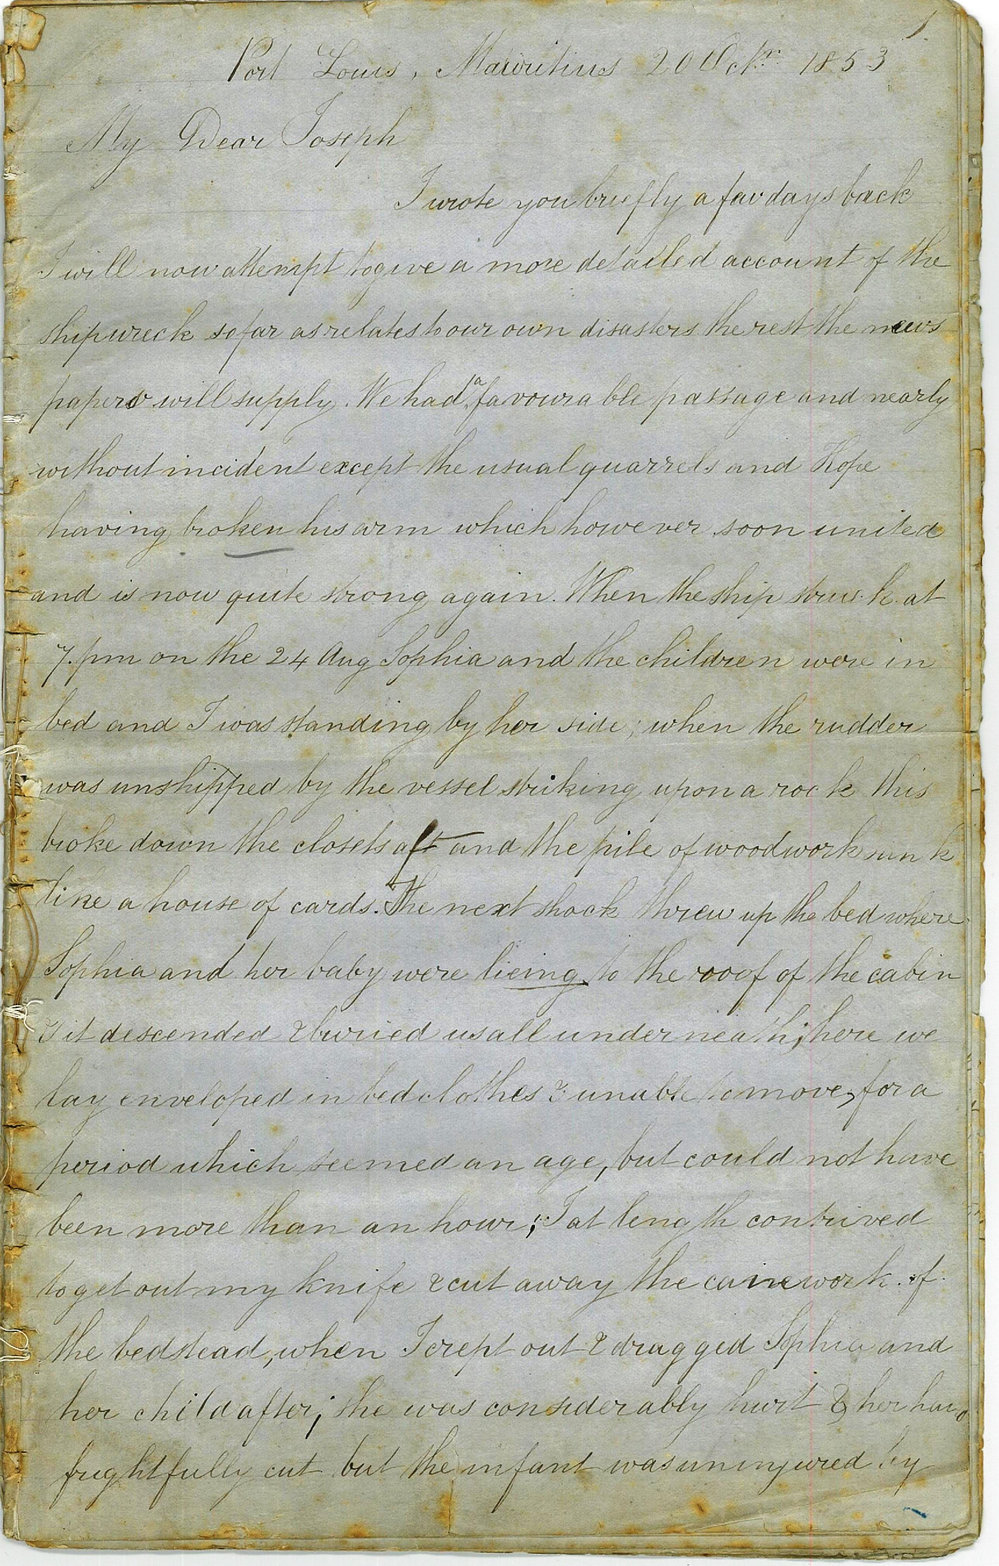 1.
Port Louis, Mauritius 20 Octr. 1853
My Dear Joseph
I wrote you briefly a few days back
I will now attempt to give a more detailed account of the
shipwreck so far as relates to our own disasters the rest the news
papers will supply. We had a favourable passage and nearly
without incident except the usual quarrels and Hope
having broken his arm which however soon united
and is now quite strong again. When the ship struck at
7. pm on the 24 Aug Sophia and the children were in
bed and I was standing by her side; when the rudder
was unshipped by the vessel striking upon a rock this
broke down the closets aft and the pile of woodwork sunk
like a house of cards. The next shock threw up the bed where
Sophia and her baby were lieing to the roof of the cabin
& it descended & buried us all underneath; here we
lay enveloped in bedclothes & unable to move, for a
period which seemed an age, but could not have
been more than an hour; I at length contrived
to get out my knife & cut away the canework of
the bedstead, when I crept out & dragged Sophia and
her child after; she was considerably hurt & her
frightfully cut but the infant was uninjured by